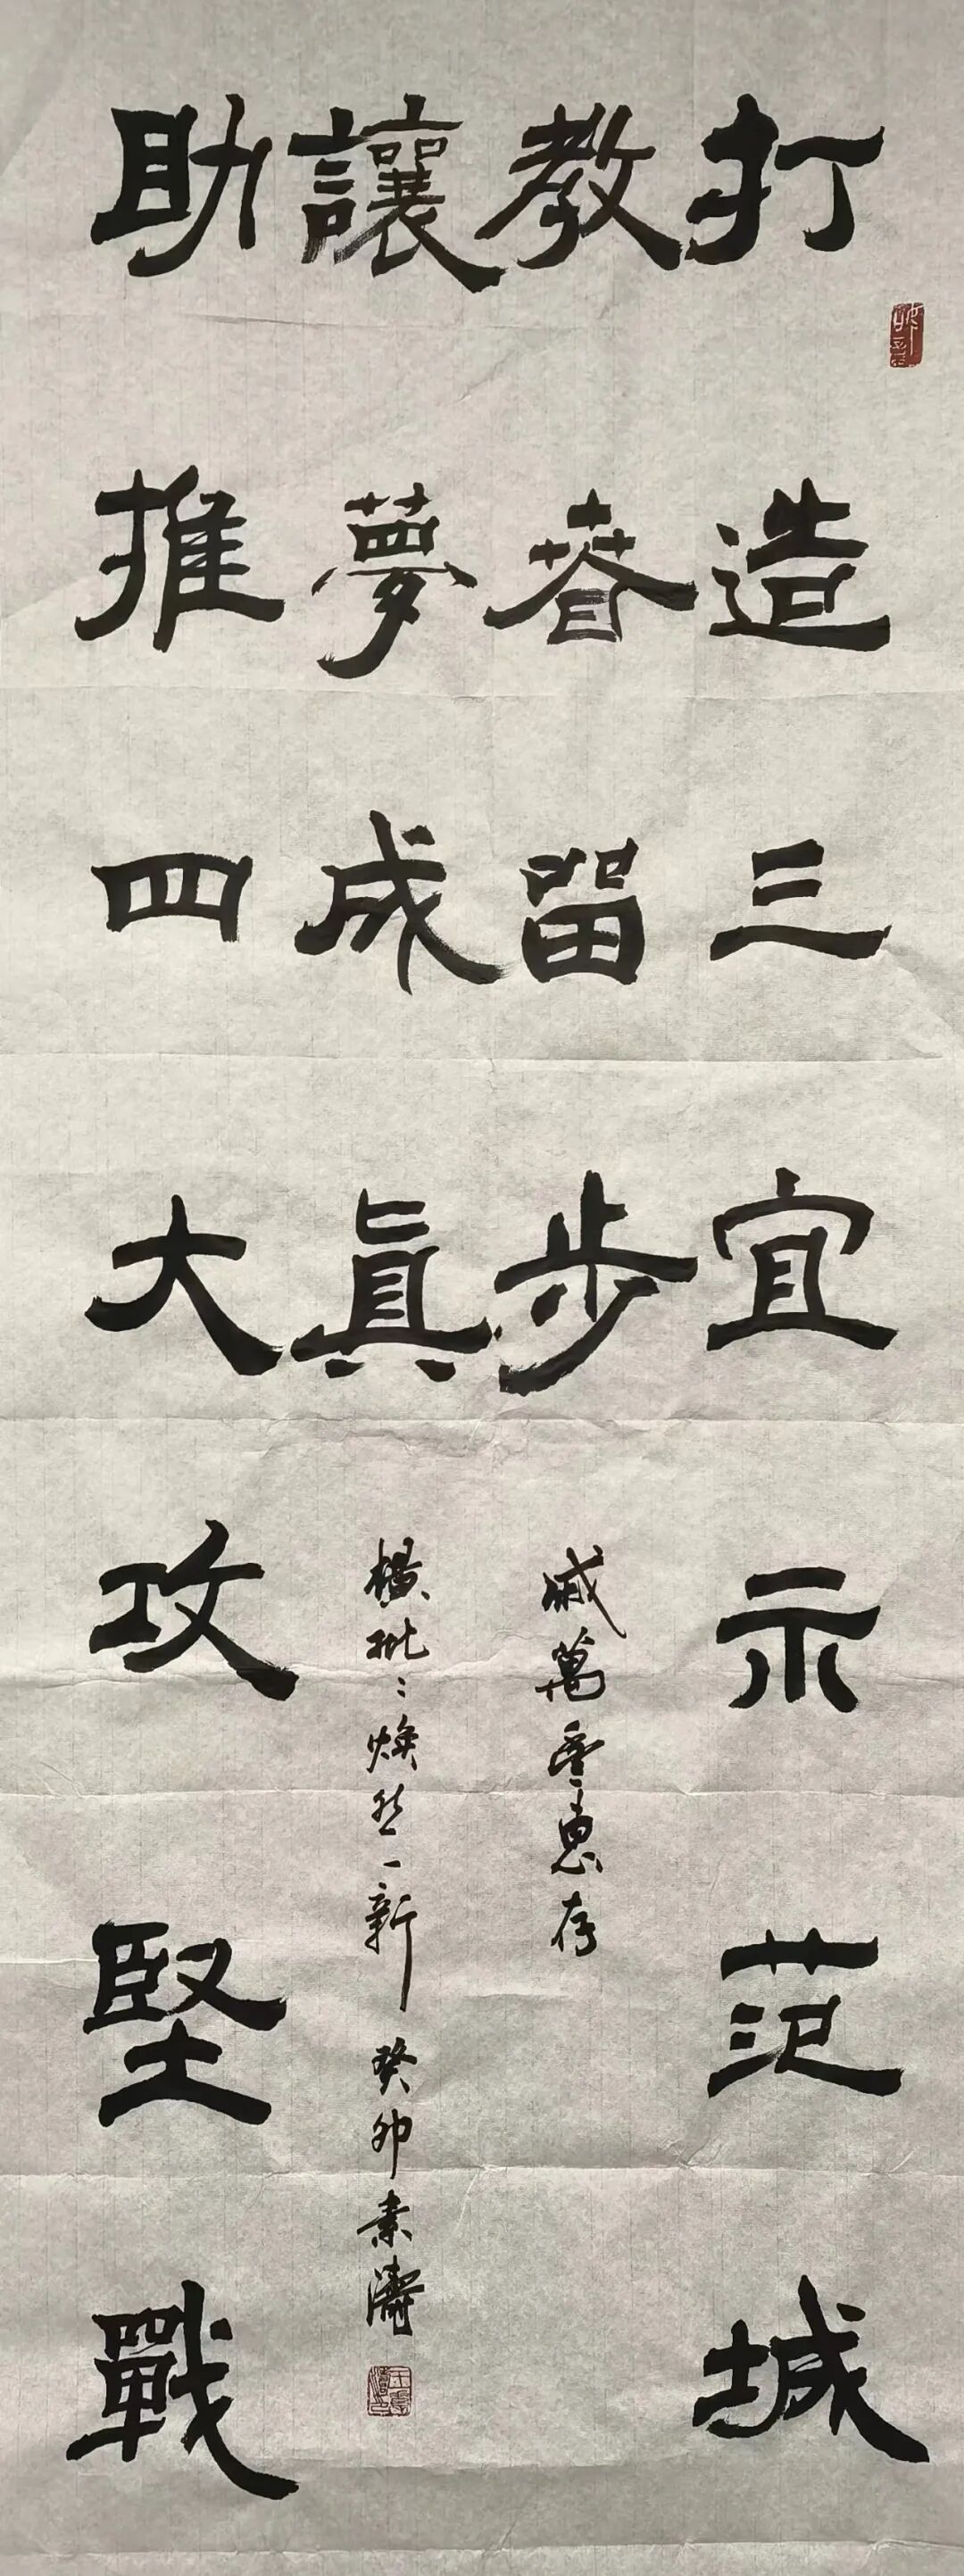 打造三宜示范城
教春留步
讓夢成真
助推四大攻堅戰
戚萬惠存
横批：焕然一新 癸卯素濤